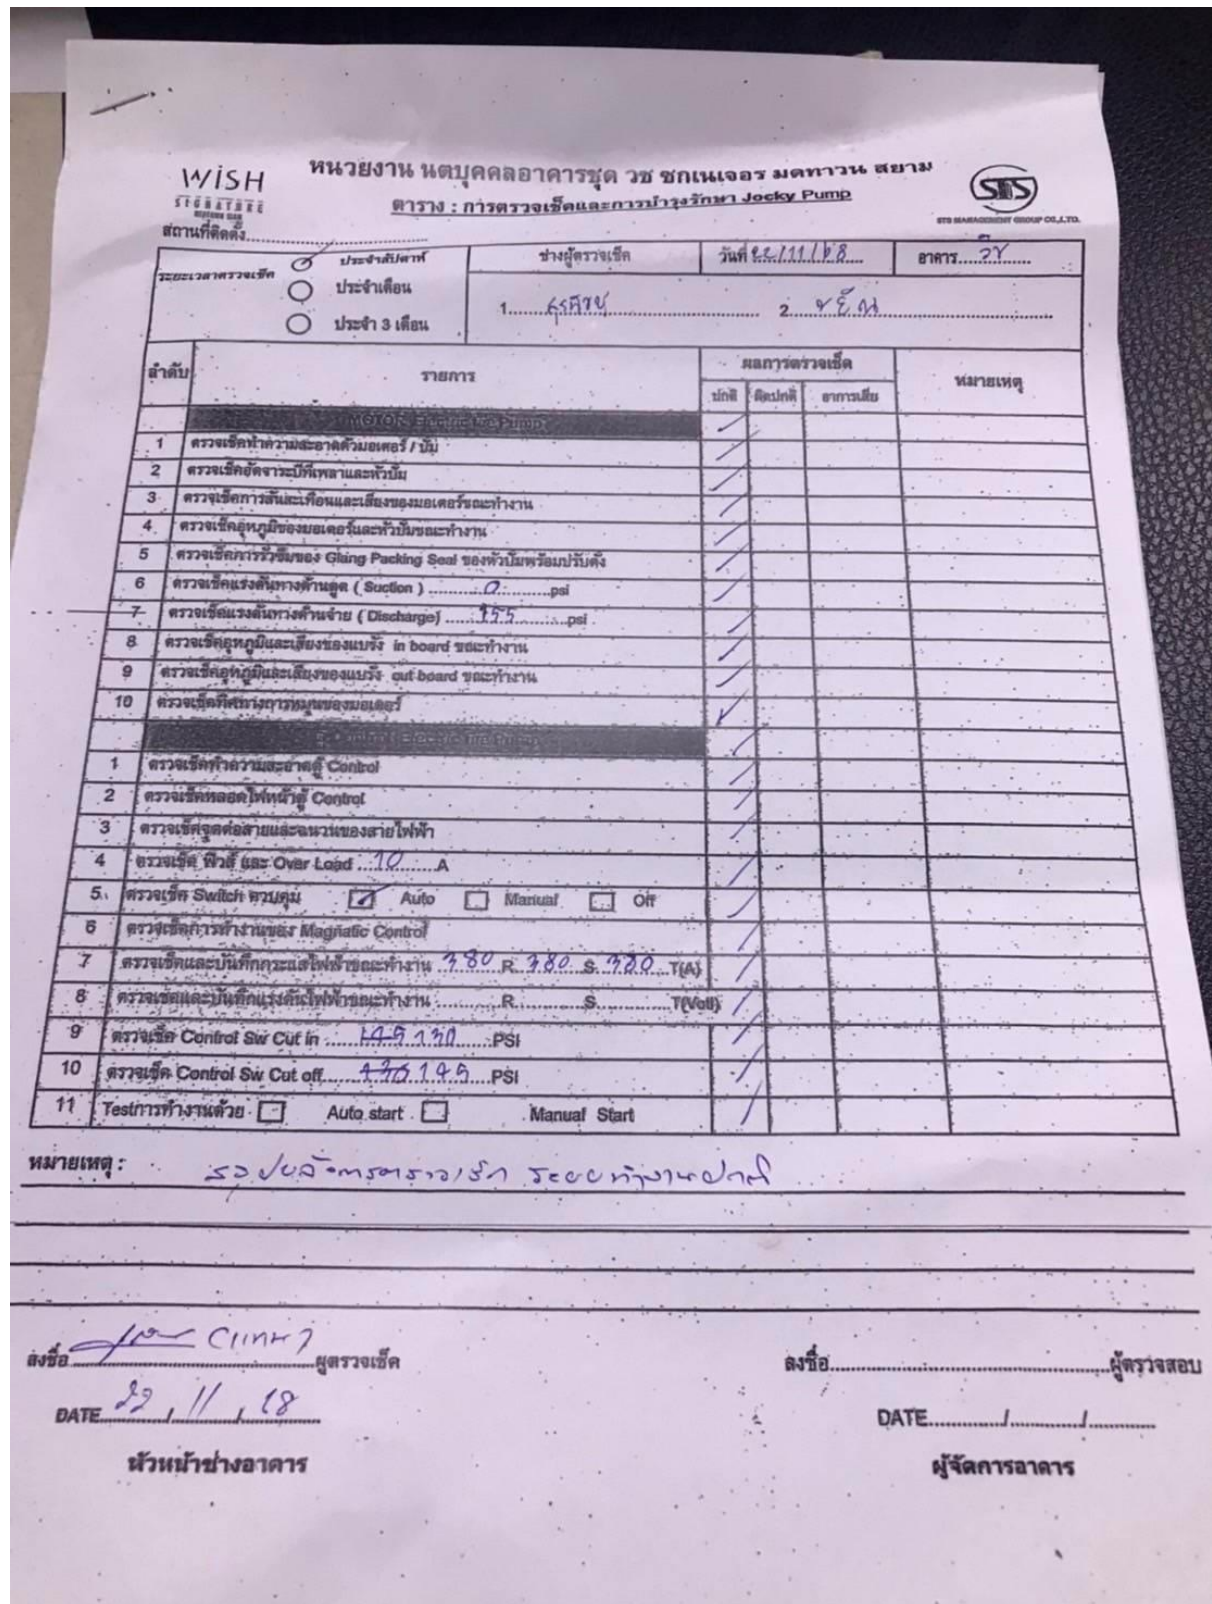 WISH
SIGNATURE
MIDTOWN SIAM
หนวยงาน นตบุคคลอาคารชุด วช ซกเนเจอร มดทาวน สยาม
ตาราง : การตรวจเช็คและการบำรุงรักษา Jocky Pump
STS
STS MANAGEMENT GROUP CO.,LTD.
สถานที่ติดตั้ง
ระยะเวลาตรวจเช็ค ประจำสัปดาห์ ช่างผู้ตรวจเช็ค วันที่ 22/11/68 อาคาร วิช
ประจำเดือน 1. 2.
ประจำ 3 เดือน
ลำดับ รายการ ผลการตรวจเช็ค หมายเหตุ
ปกติ ผิดปกติ อาการเสีย
MOTOR Electric fire Pump
1 ตรวจเช็คทำความสะอาดตัวมอเตอร์ / ปั๊ม
2 ตรวจเช็คอัดจาระบีที่เพลาและหัวปั๊ม
3 ตรวจเช็คการสั่นสะเทือนและเสียงของมอเตอร์ขณะทำงาน
4 ตรวจเช็คอุหภูมิของมอเตอร์และหัวปั๊มขณะทำงาน
5 ตรวจเช็คการรั่วซึมของ Glang Packing Seal ของหัวปั๊มพร้อมปรับตั้ง
6 ตรวจเช็คแรงดันทางด้านดูด ( Suction ) 0 psi
7 ตรวจเช็คแรงดันทางด้านจ่าย ( Discharge) 155 psi
8 ตรวจเช็คอุหภูมิและเสียงของแบริ่ง in board ขณะทำงาน
9 ตรวจเช็คอุหภูมิและเสียงของแบริ่ง out board ขณะทำงาน
10 ตรวจเช็คทิศทางการหมุนของมอเตอร์
Control Electric fire Pump
1 ตรวจเช็คทำความสะอาดตู้ Control
2 ตรวจเช็คหลอดไฟหน้าตู้ Control
3 ตรวจเช็คจุดต่อสายและฉนวนของสายไฟฟ้า
4 ตรวจเช็ค ฟิวส์ และ Over Load 10 A
5 ตรวจเช็ค Switch ควบคุม Auto Manual Off
6 ตรวจเช็คการทำงานของ Magnatic Control
7 ตรวจเช็คและบันทึกกระแสไฟฟ้าขณะทำงาน 380 R 380 S 380 T(A)
8 ตรวจเช็คและบันทึกแรงดันไฟฟ้าขณะทำงาน R S T(Volt)
9 ตรวจเช็ค Control Sw Cut in 145 130 PSI
10 ตรวจเช็ค Control Sw Cut off 130 145 PSI
11 Testการทำงานด้วย Auto start Manual Start
หมายเหตุ : สรุปหลังการตรวจเช็ค ระบบทำงานปกติ
ลงชื่อ ผูตรวจเช็ค ลงชื่อ ผู้ตรวจสอบ
DATE 22 / 11 / 68 DATE / /
หัวหน้าช่างอาคาร ผู้จัดการอาคาร